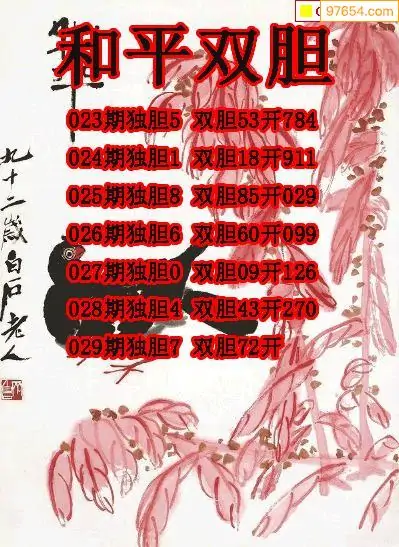 97654.com
和平双胆
023期独胆5 双胆53开784
024期独胆1 双胆18开911
025期独胆8 双胆85开029
026期独胆6 双胆60开099
027期独胆0 双胆09开126
028期独胆4 双胆43开270
029期独胆7 双胆72开
九十二岁白石老人